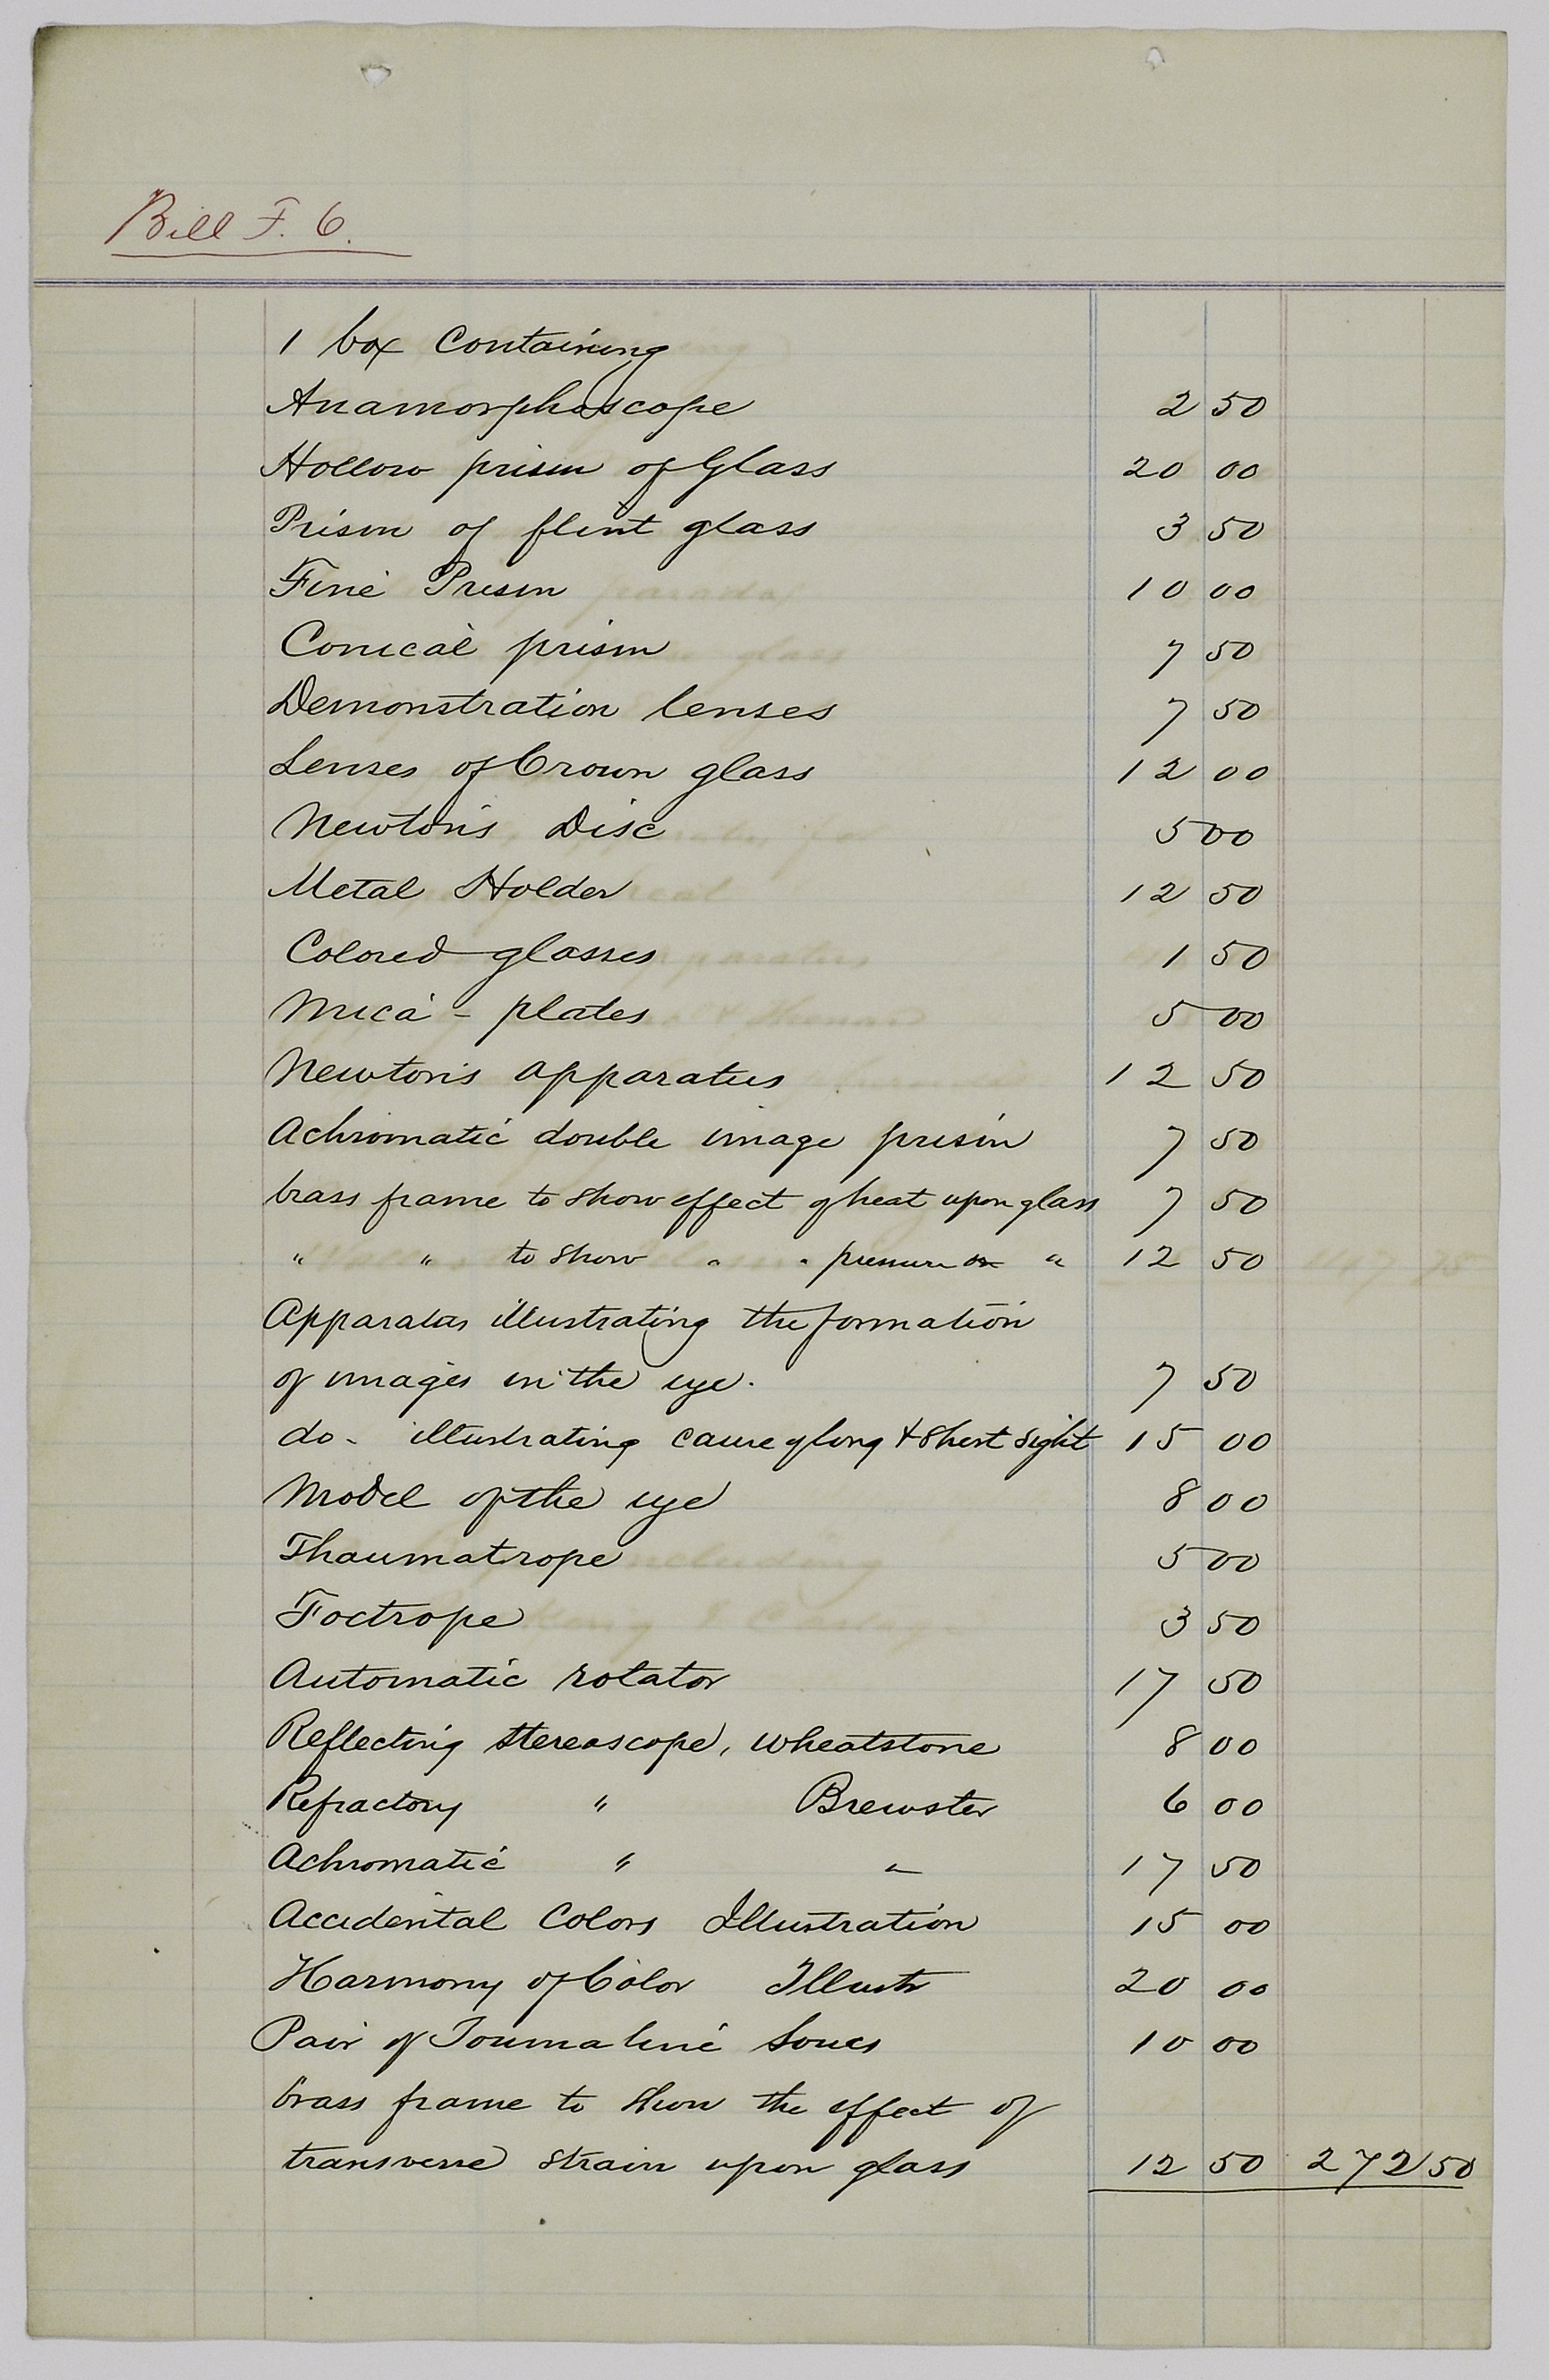 Bill F. 6.
1 box Containing
Anamorphoscope 2 50
Hollow prism of Glass 20 00
Prism of flint glass 3 50
Fine Prism 10 00
Conical prism 7 50
Demonstration lenses 7 50
Lenses of Crown glass 12 00
Newton's Disc 5 00
Metal Holder 12 50
Colored glasses 1 50
Mica - plates 5 00
Newton's apparatus 12 50
Achromatic double image prism 7 50
brass frame to show effect of heat upon glass 7 50
" " to show " " pressure on " 12 50
Apparatus illustrating the formation
of images in the eye. 7 50
do - illustrating cause of long & short sight 15 00
Model of the eye 8 00
Thaumatrope 5 00
Foctrope 3 50
Automatic rotator 17 50
Reflecting stereoscope, Wheatstone 8 00
Refractory " Brewster 6 00
Achromatic " " 17 50
Accidental Colors Illustration 15 00
Harmony of Color Illustr 20 00
Pair of Tourmaline 10 00
brass frame to show the effect of
transverse strain upon glass 12 50 272 50